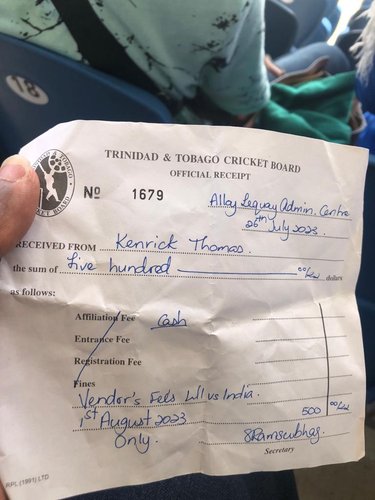 18
TRINIDAD & TOBAGO CRICKET BOARD
OFFICIAL RECEIPT
TRINIDAD & TOBAGO
CRICKET BOARD
Nº 1679
Alloy Lequay Admin. Centre
26th July 2023
RECEIVED FROM Kenrick Thomas
the sum of five hundred 00/xx dollars
as follows:
Affiliation Fee Cash
Entrance Fee
Registration Fee
Fines
Vendor's Fees WI vs India.
1st August 2023 500 00/xx
Only. SRamsubhag
Secretary
RPL (1991) LTD